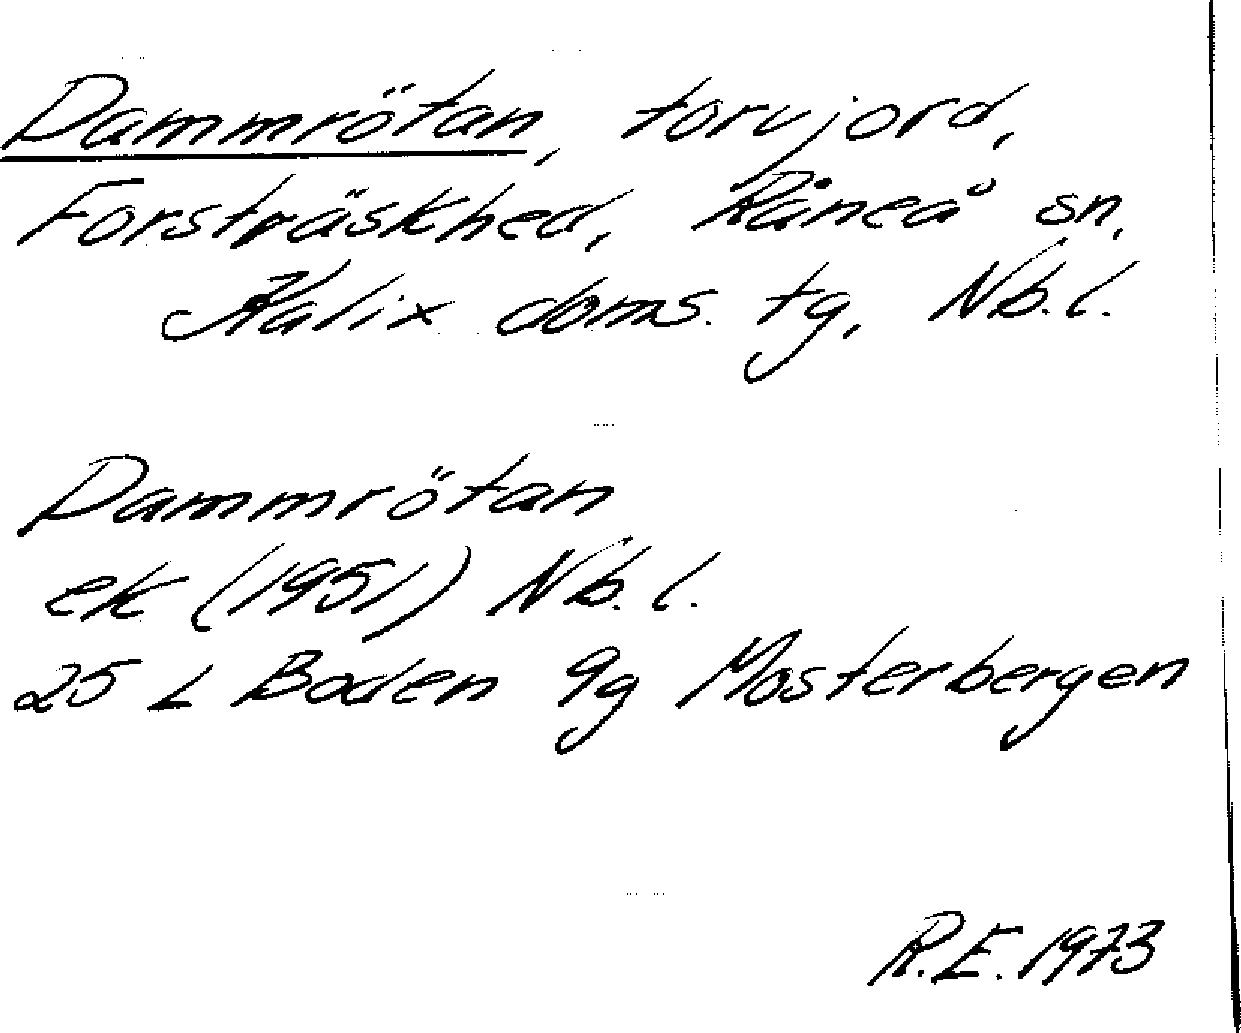 Dammrötan, torvjord,
Forsträskhed, Råneå sn,
Kalix doms. tg, Nb.l.
Dammrötan
ek (1951) Nb.l.
25 L Boden 9g Mosterbergen
R.E. 1973